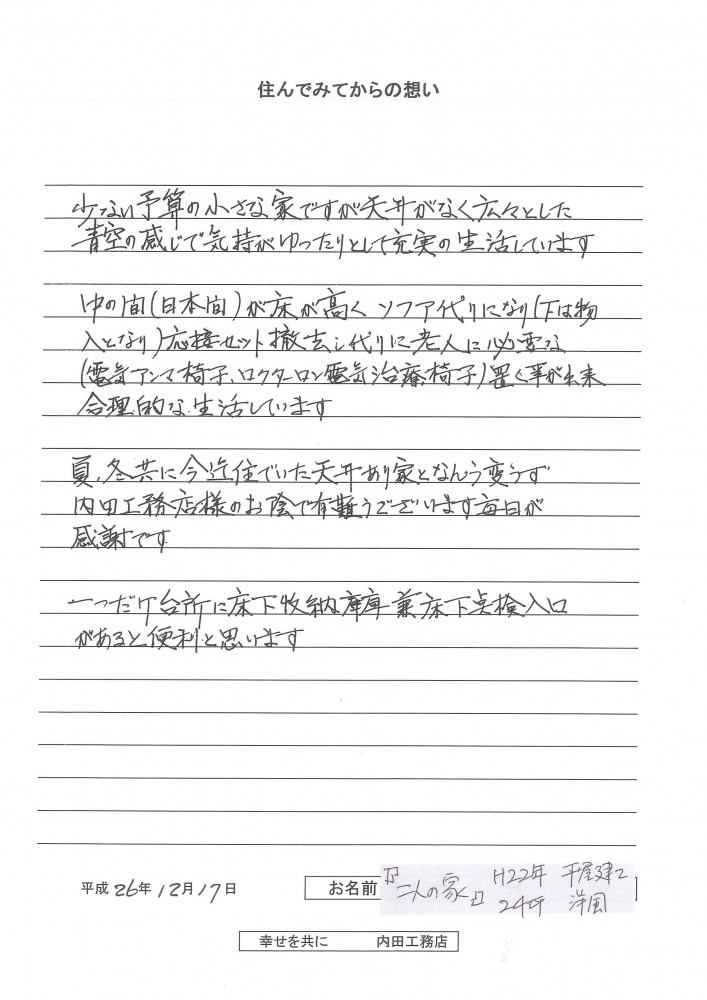 住んでみてからの想い
少ない予算の小さな家ですが天井がなく広々とした
青空の感じで気持がゆったりとして充実の生活しています
中の間(日本間)が床が高くソファ代りになり(下は物
入となり)応接セット撤去し代りに老人に必要な
(電気アンマ椅子、ロクターロン電気治療椅子)置く事が出来
合理的な生活しています
夏、冬共に今迄住でいた天井あり家となんら変らず
内田工務店様のお陰で有難うございます毎日が
感謝です
一つだけ台所に床下収納庫兼床下点検入口
があると便利と思います
平成26年12月17日
お名前 『二人の家』 H22年 平屋建て
24坪 洋風
幸せを共に 内田工務店